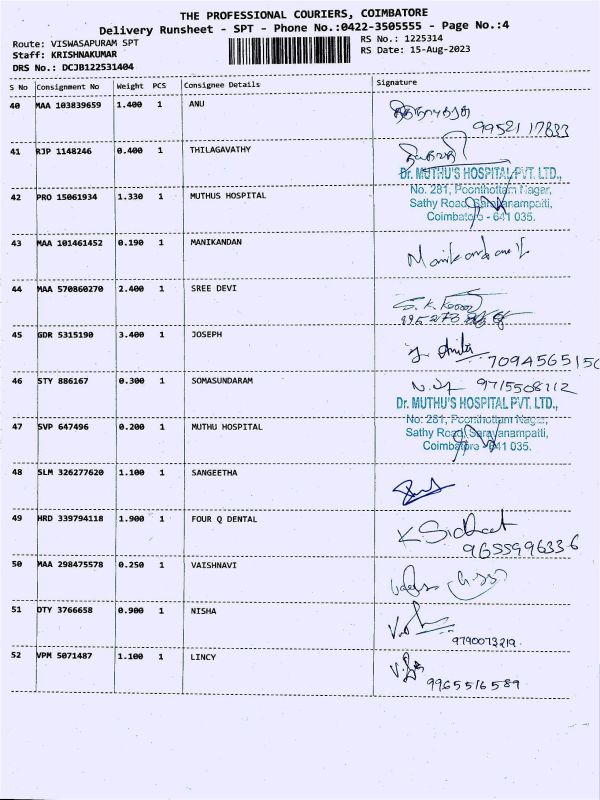 THE PROFESSIONAL COURIERS, COIMBATORE
Delivery Runsheet - SPT - Phone No.:0422-3505555 - Page No.:4
Route: VISWASAPURAM SPT
RS No.: 1225314
Staff: KRISHNAKUMAR
RS Date: 15-Aug-2023
DRS No.: DCJB122531404
S No Consignment No Weight PCS Consignee Details Signature
40 MAA 103839659 1.400 1 ANU
9952117833
41 RJP 1148246 0.400 1 THILAGAVATHY
42 PRO 15061934 1.330 1 MUTHUS HOSPITAL
Dr. MUTHU'S HOSPITAL PVT. LTD.,
No. 281, Poonthottam Nagar,
Sathy Road, Saravanampatti,
Coimbatore - 641 035.
43 MAA 101461452 0.190 1 MANIKANDAN
44 MAA 570860270 2.400 1 SREE DEVI
45 GDR 5315190 3.400 1 JOSEPH
7094565150
46 STY 886167 0.300 1 SOMASUNDARAM
9715508112
47 SVP 647496 0.200 1 MUTHU HOSPITAL
Dr. MUTHU'S HOSPITAL PVT. LTD.,
No. 281, Poonthottam Nagar,
Sathy Road, Saravanampatti,
Coimbatore - 641 035.
48 SLM 326277620 1.100 1 SANGEETHA
49 HRD 339794118 1.900 1 FOUR Q DENTAL
9655996336
50 MAA 298475578 0.250 1 VAISHNAVI
51 DTY 3766658 0.900 1 NISHA
9790073219.
52 VPM 5071487 1.100 1 LINCY
9965516589